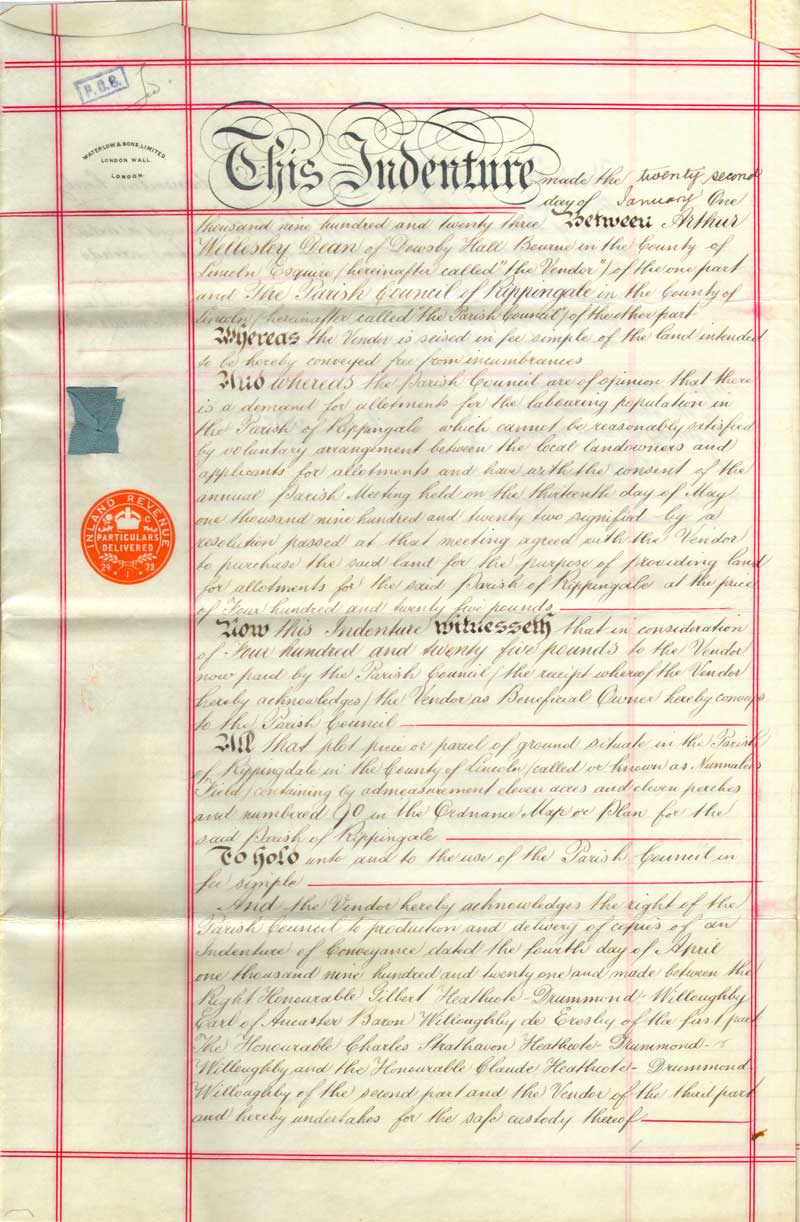 P.O.S.
WATERLOW & SONS, LIMITED,
LONDON WALL,
LONDON.
This Indenture made the twenty second
day of January One
thousand nine hundred and twenty three Between Arthur
Wellesley Dean of Dowsby Hall Bourne in the County of
Lincoln Esquire (hereinafter called "the Vendor") of the one part
and The Parish Council of Rippingale in the County of
Lincoln (hereinafter called the Parish Council) of the other part
Whereas the Vendor is seised in fee simple of the land intended
to be hereby conveyed free from incumbrances
And whereas the Parish Council are of opinion that there
is a demand for allotments for the labouring population in
the Parish of Rippingale which cannot be reasonably satisfied
by voluntary arrangement between the local landowners and
applicants for allotments and have with the consent of the
annual Parish Meeting held on the thirteenth day of May
one thousand nine hundred and twenty two signified by a
resolution passed at that meeting agreed with the Vendor
to purchase the said land for the purpose of providing land
for allotments for the said Parish of Rippingale at the price
of Four hundred and twenty five pounds
Now this Indenture witnesseth that in consideration
of Four hundred and twenty five pounds to the Vendor
now paid by the Parish Council (the receipt whereof the Vendor
hereby acknowledges) the Vendor as Beneficial Owner hereby conveys
to the Parish Council
All that plot piece or parcel of ground situate in the Parish
of Rippingdale in the County of Lincoln (called or known as Nunnaleys
Field) containing by admeasurement eleven acres and eleven perches
and numbered 90 in the Ordnance Map or Plan for the
said Parish of Rippingale
To hold unto and to the use of the Parish Council in
fee simple
And the Vendor hereby acknowledges the right of the
Parish Council to production and delivery of copies of an
Indenture of Conveyance dated the fourth day of April
one thousand nine hundred and twenty one and made between the
Right Honourable Gilbert Heathcote-Drummond-Willoughby
Earl of Ancaster Baron Willoughby de Eresby of the first part
The Honourable Charles Strathavon Heathcote-Drummond-
Willoughby and the Honourable Claude Heathcote-Drummond
Willoughby of the second part and the Vendor of the third part
and hereby undertakes for the safe custody thereof
INLAND REVENUE
PARTICULARS
DELIVERED
29 1 23